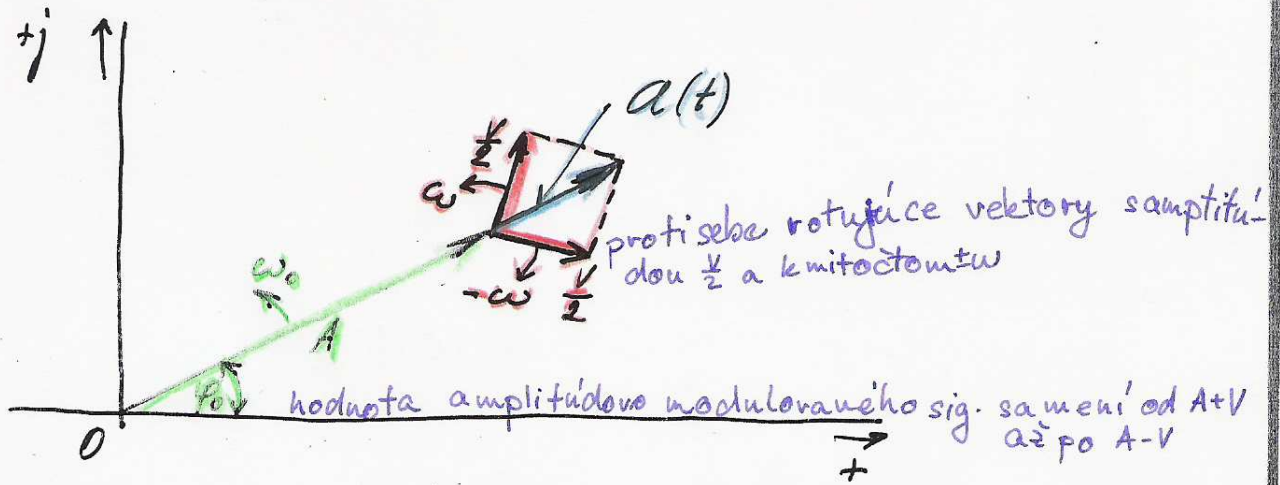 +j
a(t)
V/2
ω
protisebe rotujúce vektory samplitú-
dou V/2 a kmitočtom ±ω
-ω
V/2
ω₀
A
φ₀
hodnota amplitúdovo modulovaného sig. sa mení od A+V
až po A-V
0
+